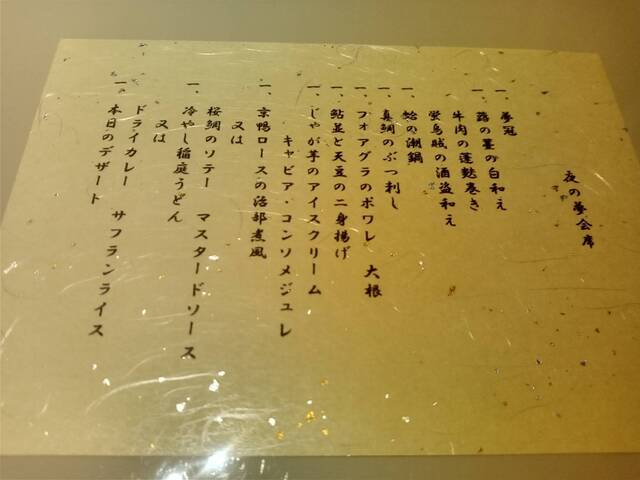 夜の夢会席
一、夢冠
一、蕗の薹の白和え
牛肉の蓬麩巻き
蛍烏賊の酒盗和え
一、蛤の潮鍋
一、真鯛のぶつ刺し
一、フォアグラのポワレ 大根
一、鮎並と天豆の二身揚げ
一、じゃが芋のアイスクリーム
キャビア・コンソメジュレ
一、京鴨ロースの治部煮風
又は
桜鯛のソテー マスタードソース
一、冷やし稲庭うどん
又は
ドライカレー サフランライス
一、本日のデザート